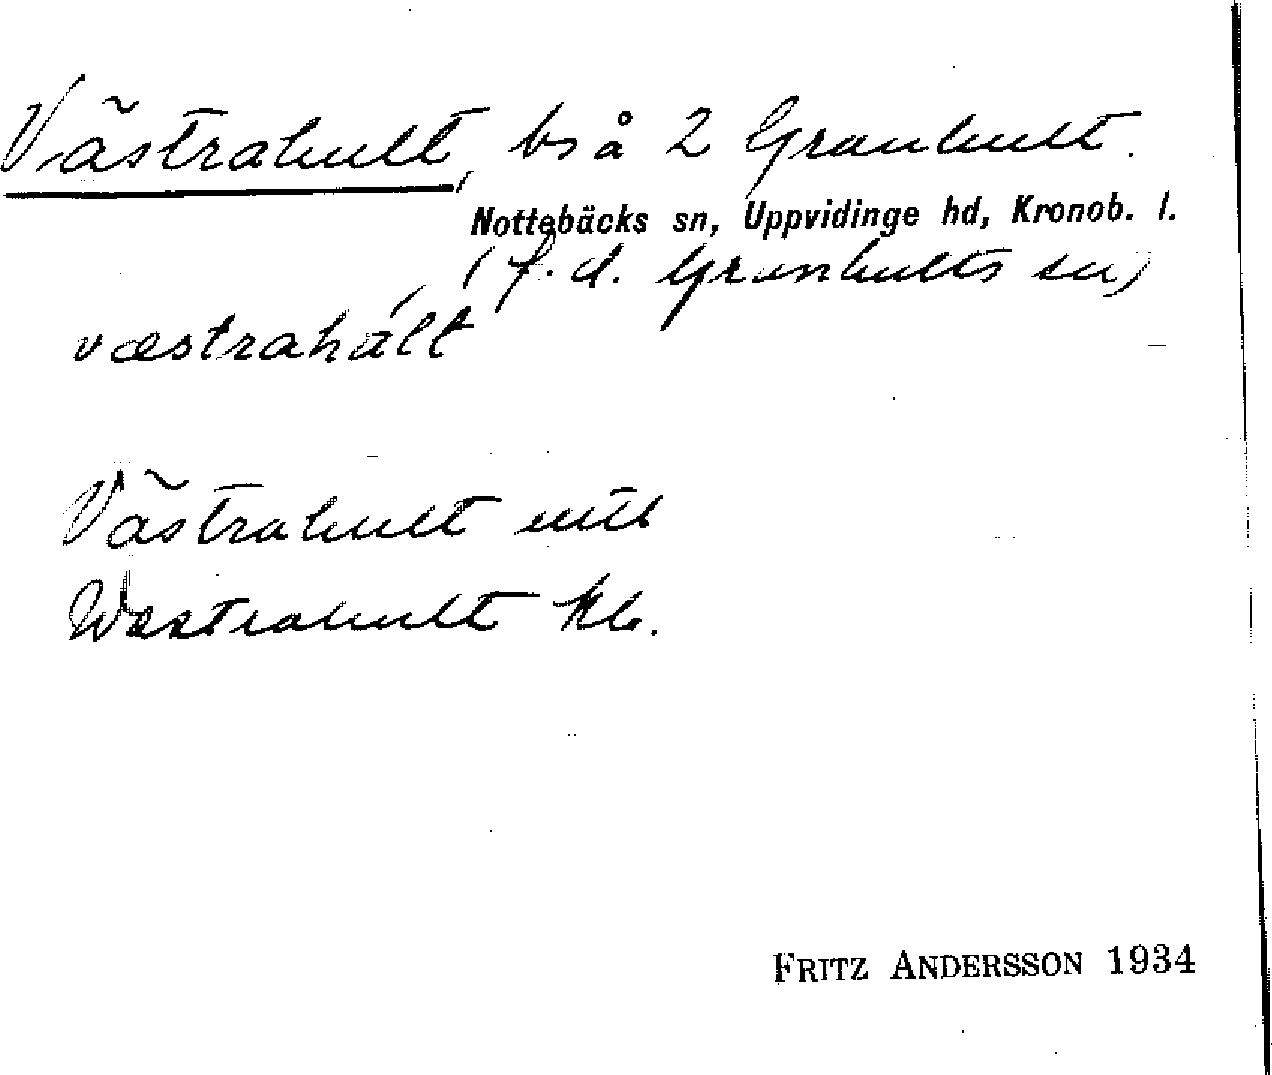 Västrahult, bs å 2 Granhult.
Nottebäcks sn, Uppvidinge hd, Kronob. l.
(f.d. Granhults sn)
væstrahält
Västrahult
Westrahult kb.
FRITZ ANDERSSON 1934